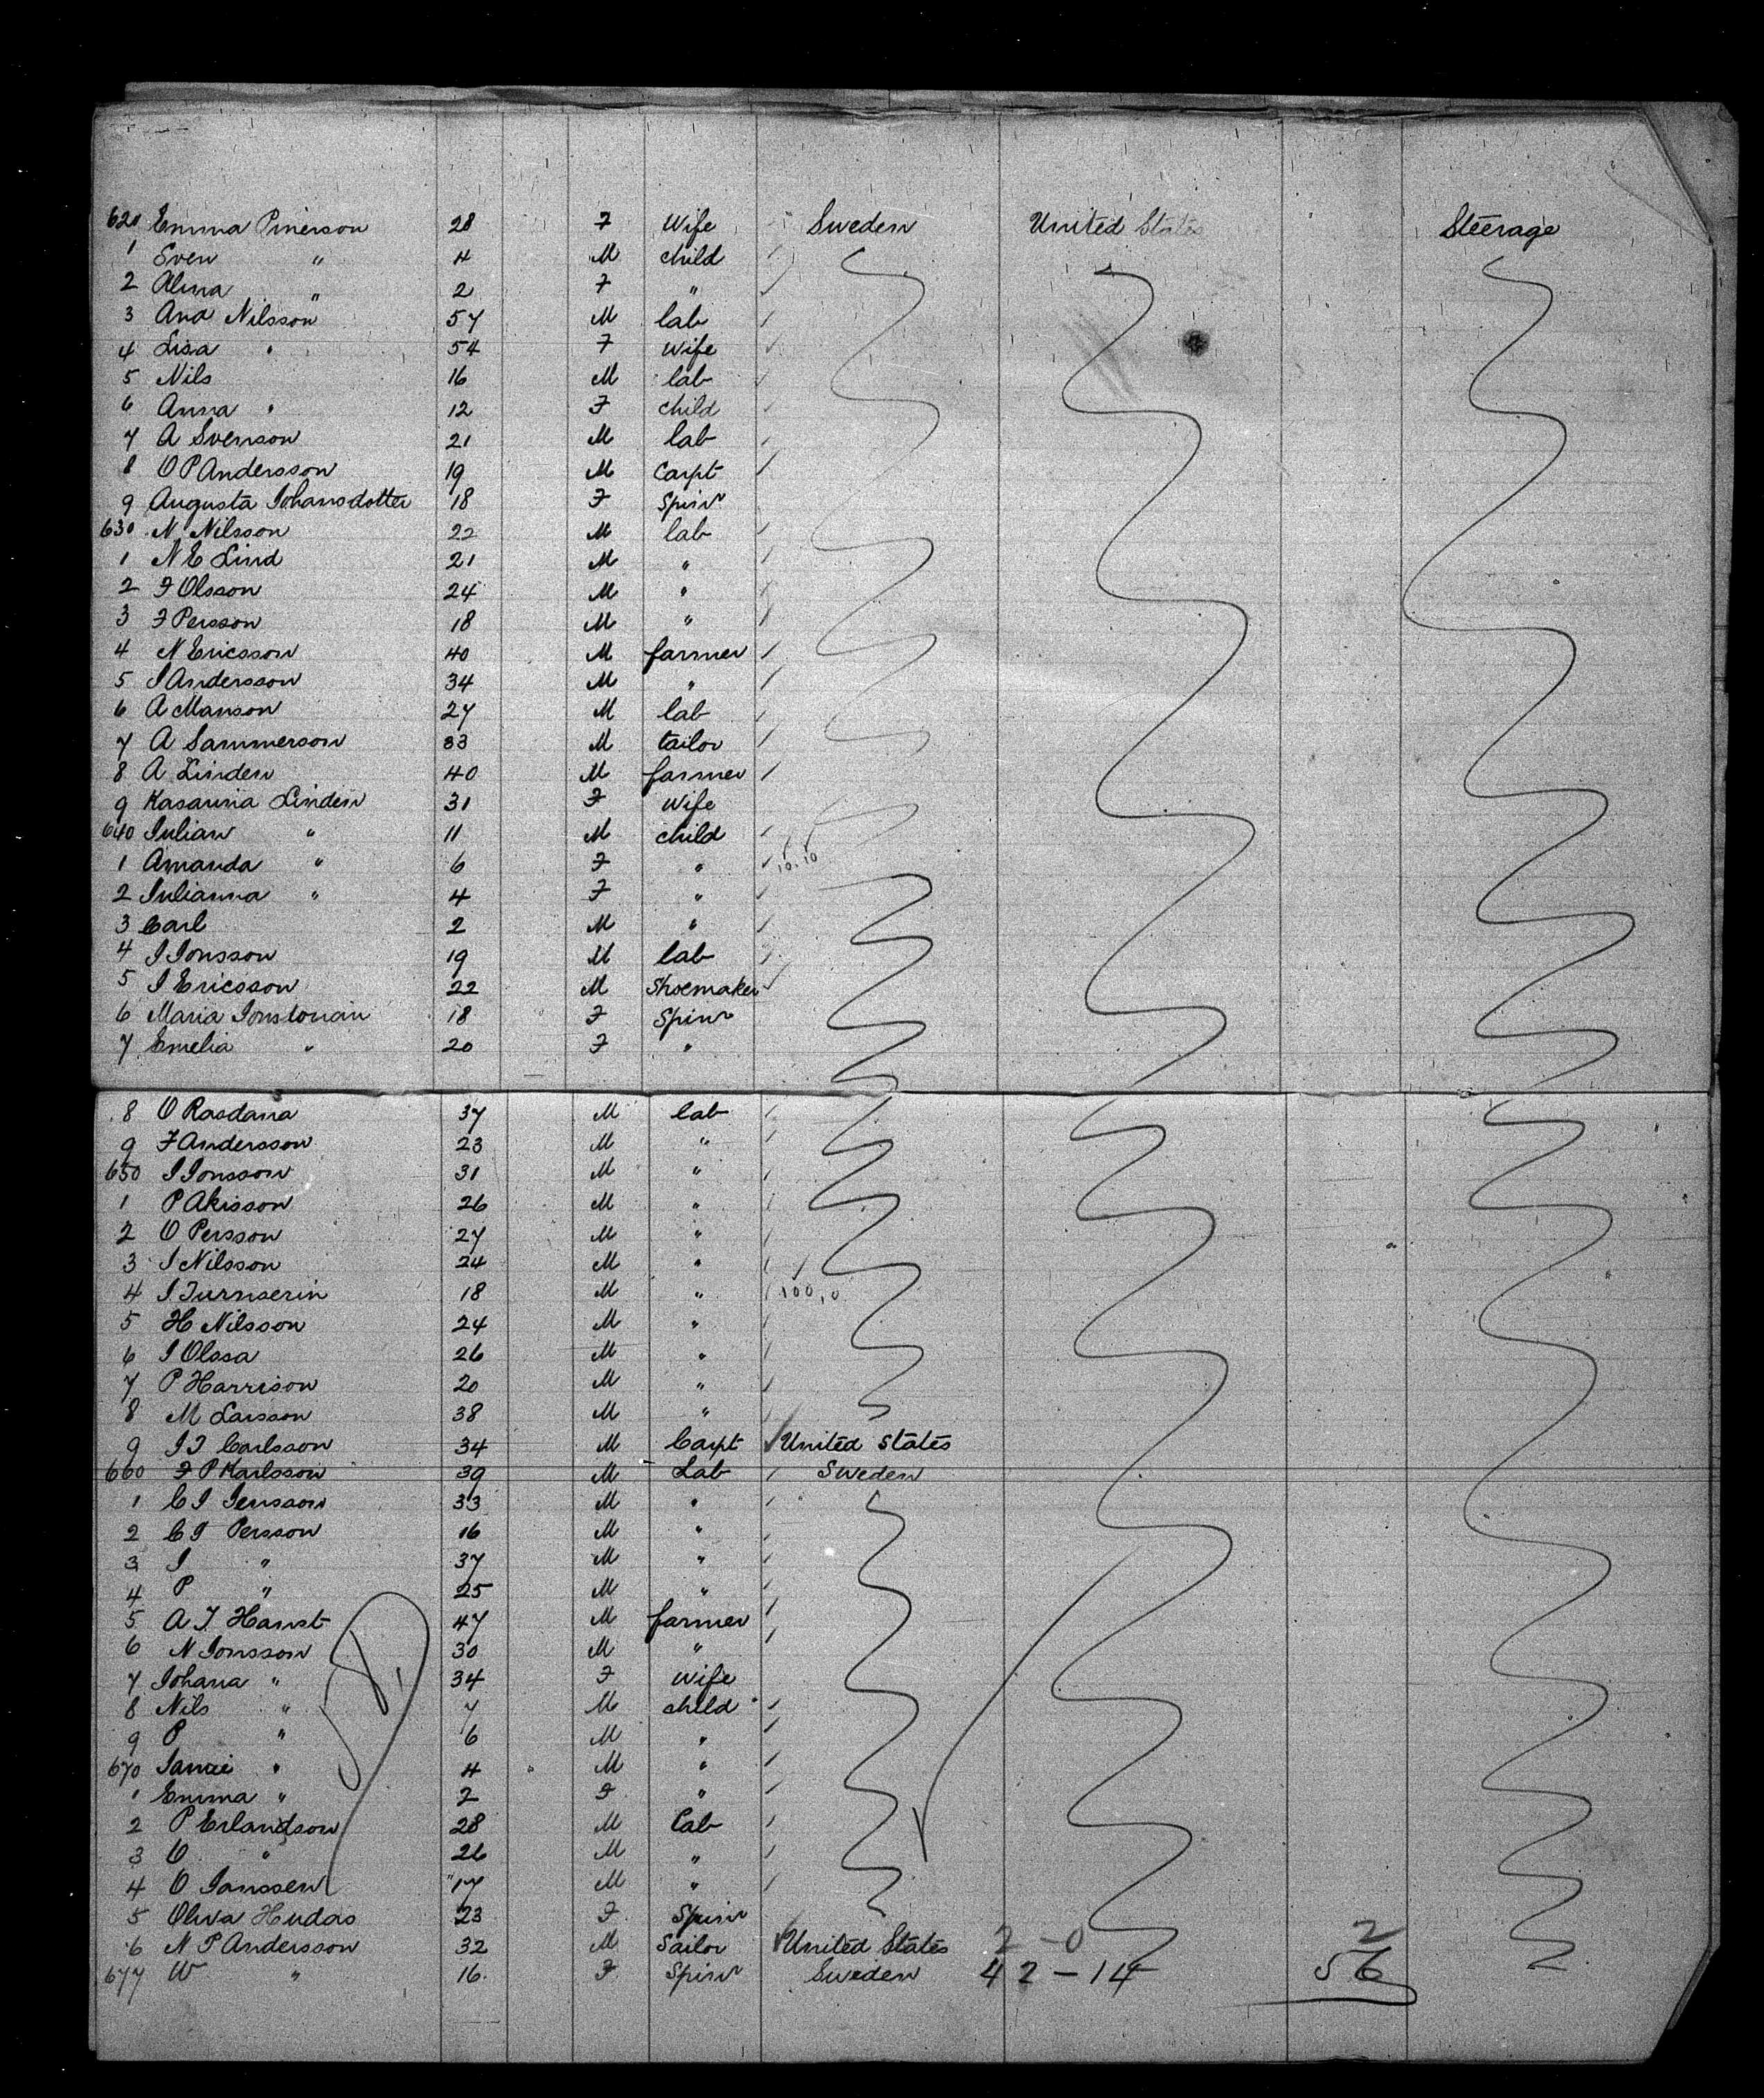 620 Emma Pinerson 28 F Wife Sweden United States Steerage
1 Sven " 4 M child
2 Alma " 2 F "
3 And Nilsson 57 M lab
4 Lisa " 54 F Wife
5 Nils 16 M lab
6 Anna " 12 F child
7 A Svenson 21 M lab
8 O P Andersson 19 M Carpt
9 Augusta Johansdotter 18 F Spinr
630 N Nilsson 22 M lab
1 N E Lind 21 M "
2 F Olsson 24 M "
3 F Persson 18 M "
4 N Ericsson 40 M farmer
5 J Andersson 34 M "
6 A Manson 27 M lab
7 A Sammerson 33 M tailor
8 A Linden 40 M farmer
9 Kasauria Linden 31 F Wife
640 Julian " 11 M child
1 Amanda " 6 F " 10.10
2 Julianna " 4 F "
3 Carl 2 M "
4 J Jonsson 19 M lab
5 J Ericsson 22 M Shoemaker
6 Maria 18 F Spinr
7 Emelia " 20 F "
8 O Rasdana 37 M lab
9 F Andersson 23 M "
650 J Jonsson 31 M "
1 P Akisson 26 M "
2 O Persson 27 M "
3 J Nilsson 24 M "
4 J Turnserin 18 M "
5 H Nilsson 24 M "
6 J Olssa 26 M "
7 P Harrison 20 M "
8 M Larsson 38 M "
9 J J Carlsson 34 M Carpt United States
660 F P Karlsson 39 M Lab Sweden
1 C J Jensson 33 M "
2 C J Persson 16 M "
3 J " 37 M "
4 P " 25 M "
5 A J Hanst 47 M farmer
6 N Jonsson 30 M "
7 Johana " 34 F Wife
8 Nils " 7 M child
9 P " 6 M "
670 " 4 M "
1 Emma " 2 F "
2 P Erlandson 28 M Lab
3 O " 26 M "
4 O Janssen 17 M "
5 Oliva Hudas 23 F Spinr
6 N P Andersson 32 M Sailor United States 2 - 0 2
677 W " 16 F Spinr Sweden 42 - 14 56